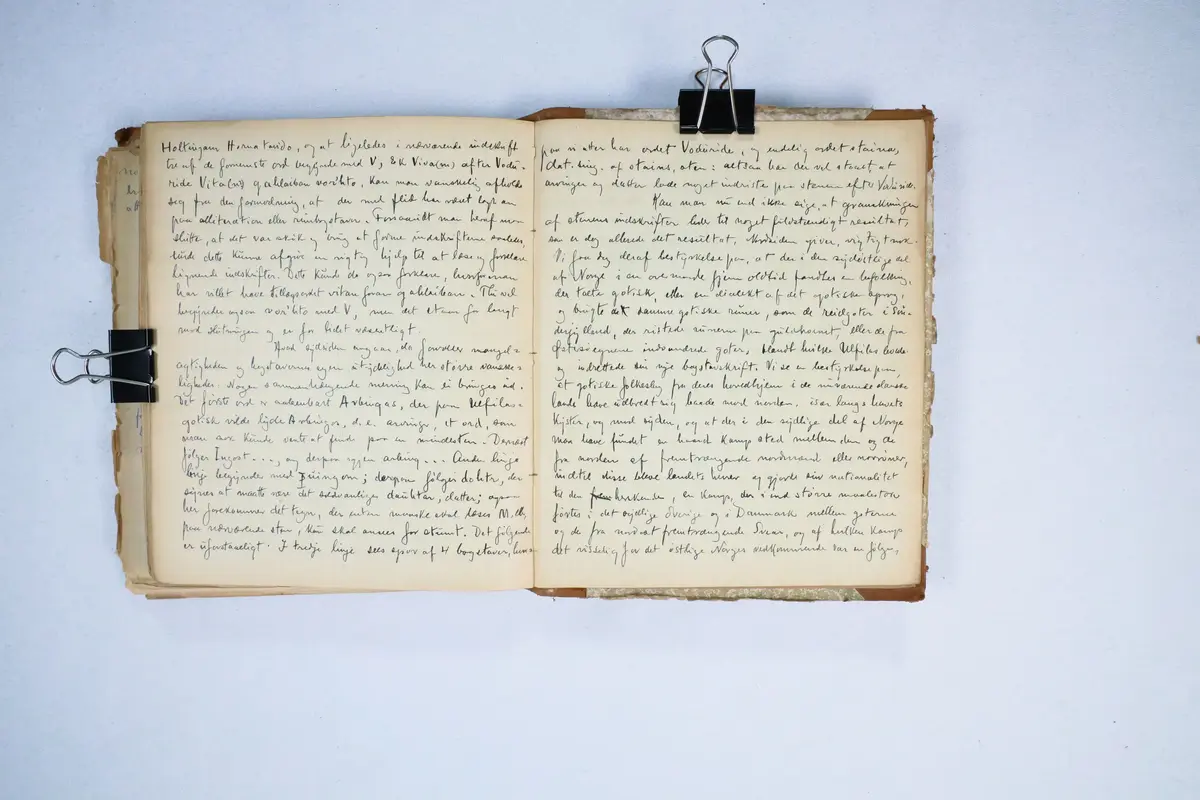 Holtingam Hornatavido, og at ligeledes i nærværende indskrift
tre af de fornemste ord begynde med V, Ek Viva(m) after Vodu-
ride Vita(n)i gahlaiban vorhto, kan man vanskelig afholde
sig fra den formodning, at der med flid har været lagt an
paa alliteration eller rimbogstaver. Forsaavidt man heraf maa
slutte, at det var skik og brug at forme indskrifterne saaledes,
turde dette kunne afgive en vigtig hjelp til at læse og forklare
lignende indskrifter. Dette kunde da ogsaa forklare, hvorfor man
har villet have tillægsordet vitan foran gahlaiban. Thi vel
begynder ogsaa vorhto med V, men det staar for langt
mod slutningen og er for lidet væsentligt.
Hvad sydsiden angaar, da forvolder mangel-
agtigheden og bogstavernes egen utydelighed her større vanske-
ligheder. Nogen sammenhængende mening kan ei bringes ud.
Det første ord er aabenbart Arbingas, der paa Ulfilas-
gotisk vilde lyde Arbingos, d. e. arvinge, et ord, som
man nok kunde vente at finde paa en mindesten. Dernæst
følger Ingost..., og derpaa igjen arbing... Anden linge
begynder med þuingom; derpaa følger dohtr, der
synes at maatte være det sædvanlige dauhtar, datter; ogsaa
her forekommer det tegn, der enten maaske skal læses M, eller,
paa nærværende sten, kun skal ansees for atskilt. Det følgende
er uforstaaeligt. I tredje linge sees spor af 4 bogstaver, hvor-
paa vi atter har ordet Voduride, og endelig ordet staina,
dat. sing. af stains, sten: altsaa har der vel staaet, at
arvinger og datter lode noget indriste paa stenen efter Voduride.
Kan man nu end ikke sige, at granskningen
af stenens indskrifter leder til noget fuldstændigt resultat,
saa er dog allerede det resultat, Nordsiden giver, vigtigt nok.
Vi faa dog deraf bestyrkelse paa, at der i den sydøstlige del
af Norge i en ovenmaade fjern oldtid fandtes en befolkning,
der talte gotisk, eller en dialekt af det gotiske sprog,
og brugte de samme gotiske runer, som de reidgoter i Søn-
derjylland, der ristede runerne paa guldhornet, eller de fra
Østersøegnene indvandrede goter, blandt hvilke Ulfilas levede
og indrettede sin nye bogstavskrift. Vi se en bestyrkelse paa,
at gotiske folkesdrag fra deres hovedhjem i de nuværende danske
lande have udbredt sig baade mod norden, især langs havets
kyster, og mod syden, og at der i den sydlige del af Norge
maa have fundet en haard kamp sted mellem dem og de
fra norden af fremtrængende nordmænd eller norröner,
indtil disse bleve landets herrer og gjorde sin nationalitet
til den herskende, en kamp, der i end större maalestok
førtes i det sydlige Sverige og i Danmark mellem goterne
og de fra nordøst fremtrængende Svear, og af hvilken kamp
det visselig for det østlige Norges vedkommende var en følge,